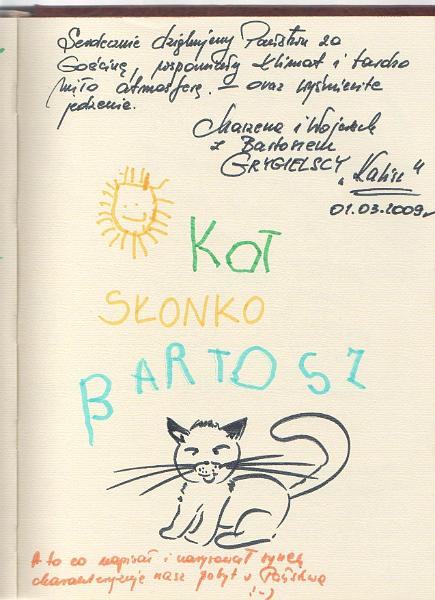 Serdecznie dziękujemy Państwu za
Gościnę, wspaniały klimat i bardzo
miłą atmosferę, – oraz wyśmienite
jedzenie.
Marzena i Wojciech
z Bartoszem
GRYGIELSCY
"Kalisz"
01.03.2009r
KOT
SŁONKO
BARTOSZ
A to co napisał i narysował synek
charakteryzuje nasz pobyt u Państwa
!:-)